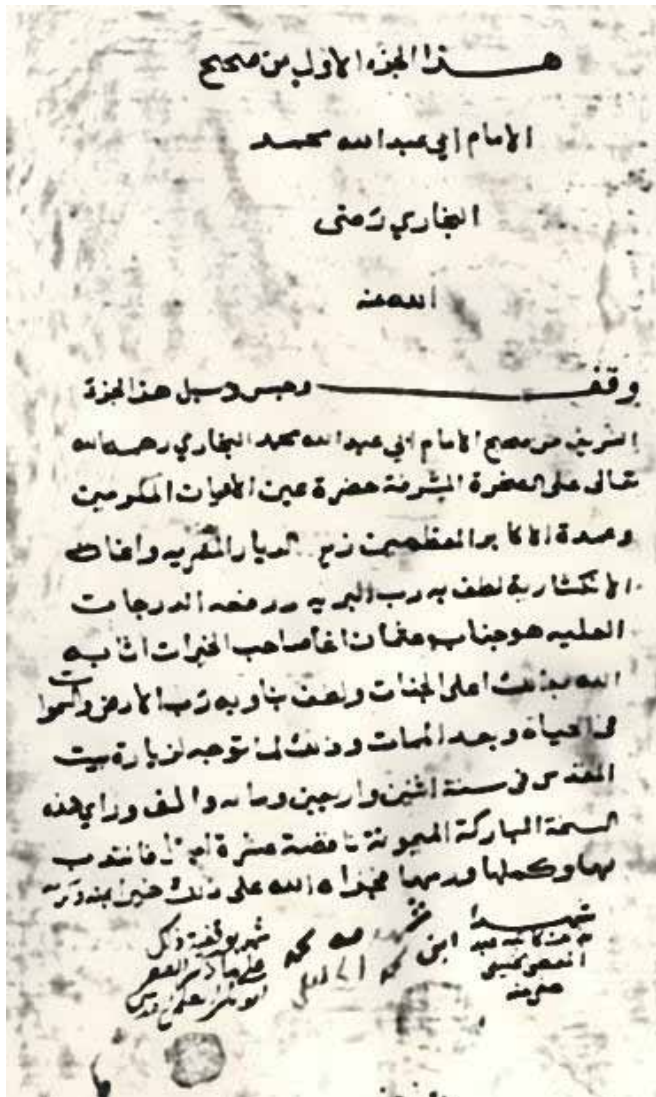 هذا الجزء الاول من صحيح
الامام ابي عبد الله محمد
البخاري رضى
الله عنه
وقف وحبس وسبل هذا الجزء
الشريف من صحيح الامام ابي عبد الله محمد البخاري رحمه الله
تعالى على الصخرة المشرفة حضرة عين الاعيان المكرمين
وعمدة الاكابر المعظمين الديار المصريه واغات
الانكشارية لطف به رب البريه ورفعه الدرجات
العليه هو جناب عثمان اغا صاحب الخيرات اثابه
الله بذلك اعلى الجنات ولطف بنا وبه رب الارض والسموات
في الحياة وبعد الممات وذلك لما توجه لزيارة بيت
المقدس في سنة اثنين واربعين ومايه والف وراي هذه
النسخة المباركة الميمونة ناقصة عشرة فانتدب
لها وكملها ورمها فجزاه الله على ذلك خيرا
شهد
شهد بوقفية ذلك